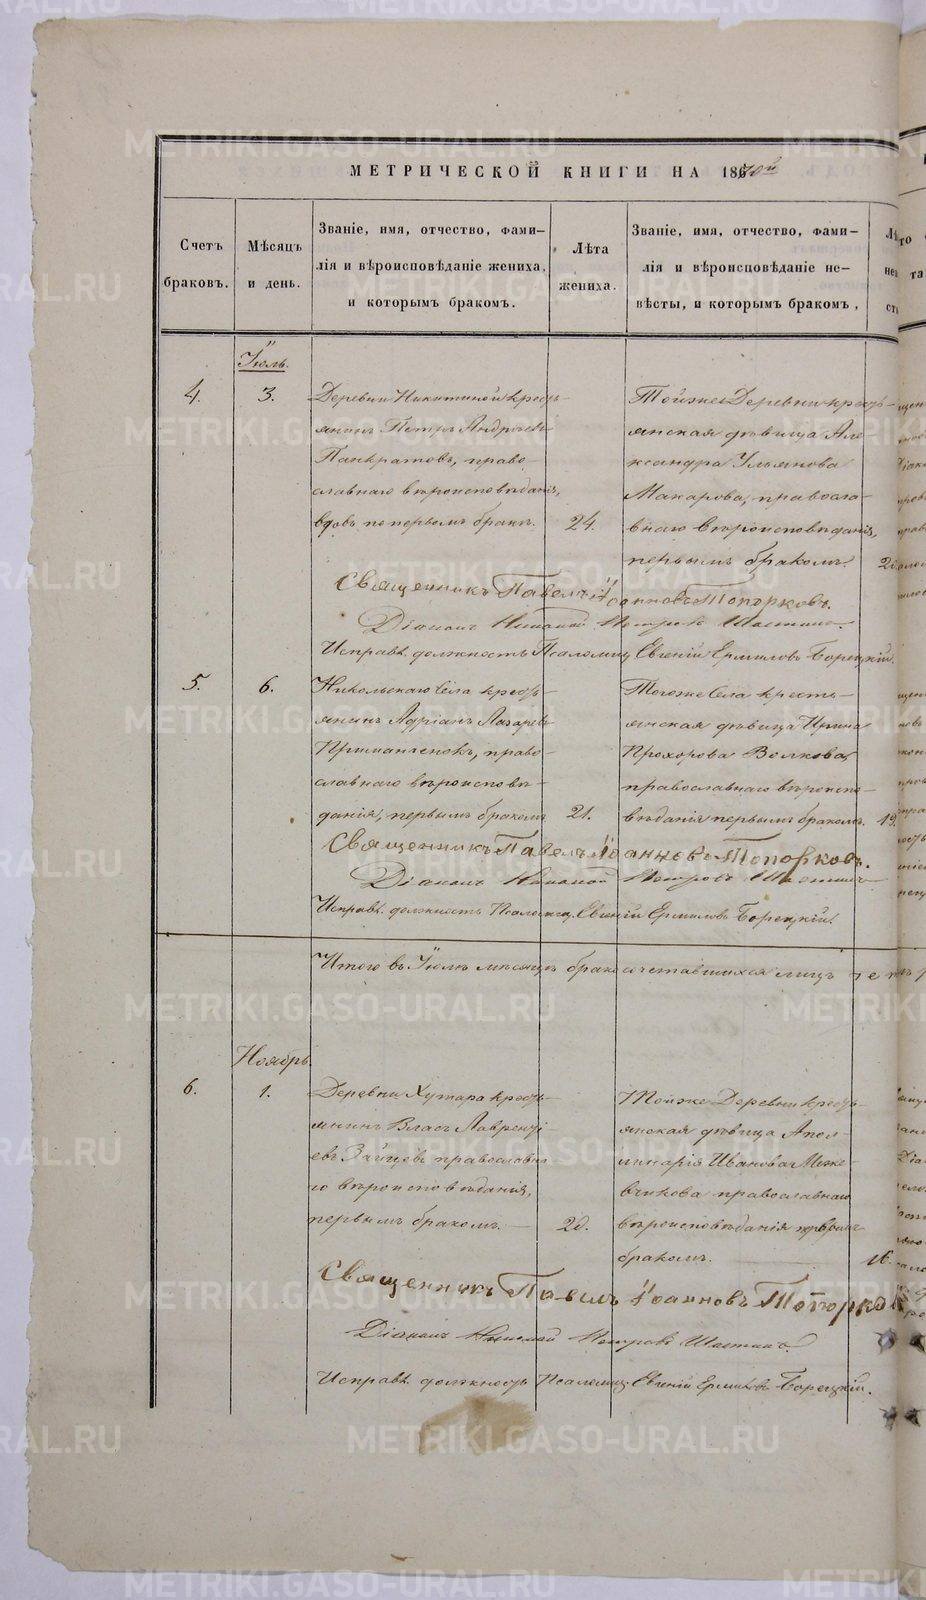 МЕТРИЧЕСКОЙ КНИГИ НА 1870й
Счетъ браковъ.
Мѣсяцъ и день.
Званіе, имя, отчество, фами-
лія и вѣроисповѣданіе жениха,
и которымъ бракомъ.
Лѣта жениха.
Званіе, имя, отчество, фами-
лія и вѣроисповѣданіе не-
вѣсты, и которымъ бракомъ,
Іюль.
4.
3.
Деревни Никитиной кресть-
янинъ Петръ Андрѣевъ
Панкратовъ, право-
славнаго вѣроисповѣданія,
вдовъ по первомъ бракѣ.
24.
Тойже Деревни кресть-
янская дѣвица Але-
ксандра Ульянова
Макарова, правосла-
внаго вѣроисповѣданія,
первымъ бракомъ.
Священникъ Павелъ Іоанновъ Топорковъ.
Діаконъ Николай Петровъ
Исправл. должность Псаломщ. Евгеній Ермиловъ Борецкій.
5.
6.
Никольскаго Села кресть-
янинъ Адріанъ Лазаревъ
право-
славнаго вѣроисповѣ-
данія, первымъ бракомъ
21.
Тогоже Села кресть-
янская дѣвица Ирина
Прохорова Волкова,
православнаго вѣроиспо-
вѣданія первымъ бракомъ.
19.
Священникъ Павелъ Іоанновъ Топорковъ.
Діаконъ Николай Петровъ
Исправл. должность Псаломщ. Евгеній Ермиловъ Борецкій.
Итого въ Іюлѣ мѣсяцѣ бракосочетавшихся лицъ
Ноябрь.
6.
1.
Деревни Хутара кресть-
янинъ Власъ Лавренті-
евъ Зайцевъ православна-
го вѣроисповѣданія,
первымъ бракомъ.
20.
Тойже Деревни кресть-
янская дѣвица Апол-
линарія Иванова
православнаго
вѣроисповѣданія первымъ
бракомъ.
16.
Священникъ Павелъ Іоанновъ
Діаконъ Николай Петровъ
Исправл. должность Псаломщ. Евгеній Ермиловъ Борецкій.
METRIKI.GASO-URAL.RU